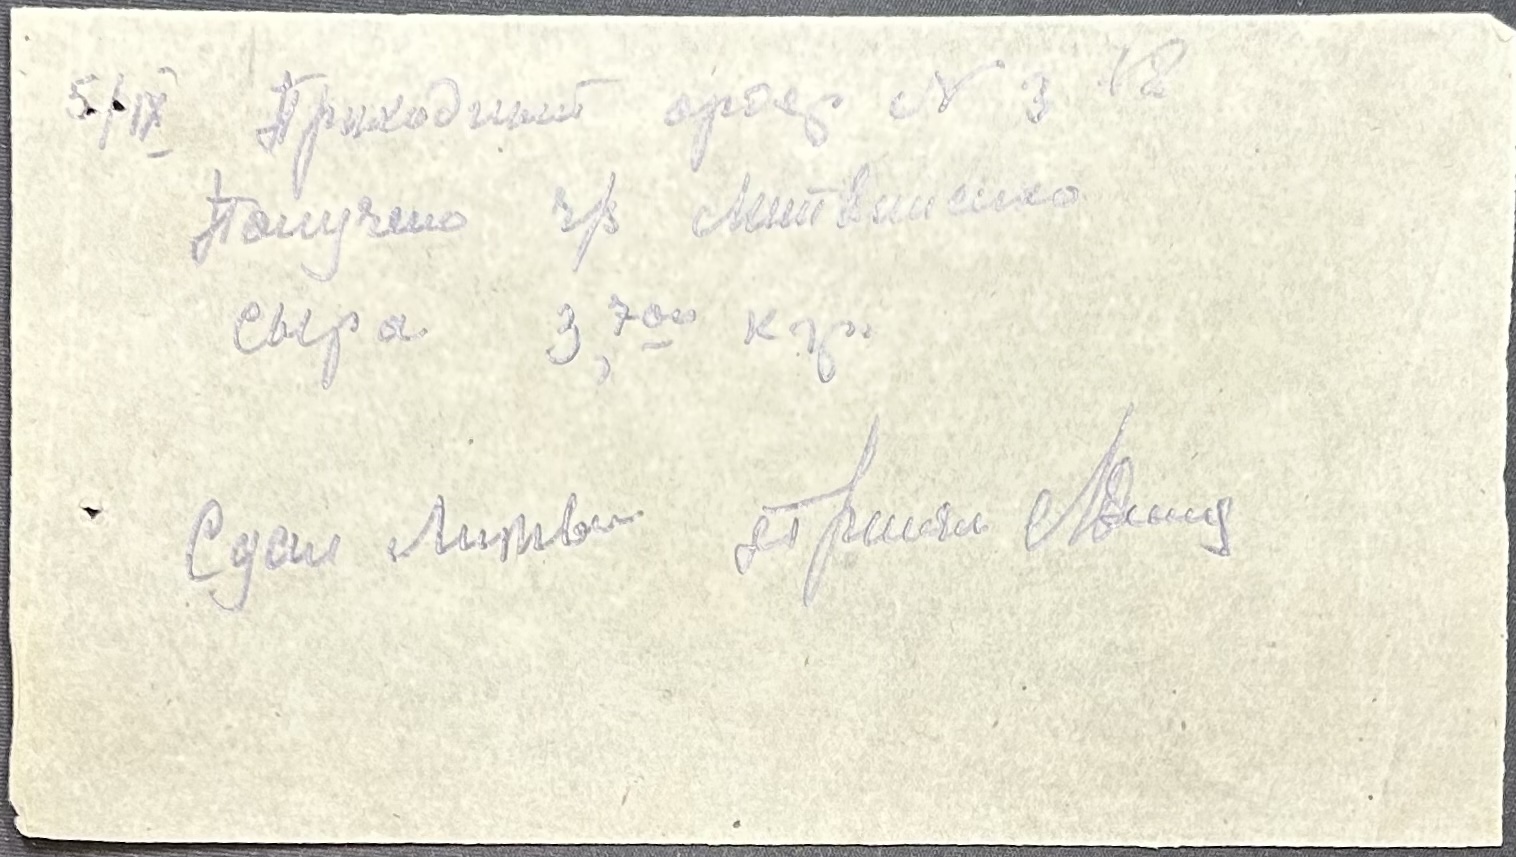 5/IX Приходный ордер № 3 12
Получено гр Литвиненко
сыра 3,700 кгр.
Сдал Литви Принял